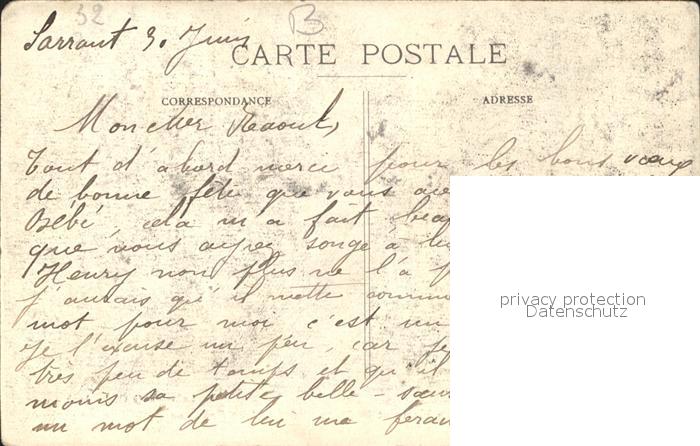 32 B
Sarrant 3. Juin
CARTE POSTALE
CORRESPONDANCE ADRESSE
Mon cher Raoul,
Tout d'abord merci pour les bons vœux
de bonne fête que vous
Bébé, cela m'a fait
que vous ayez songé à
Henry non plus ne l'a
j'aurais qu'il mette
mot pour moi c'est un
je l'excuse un peu, car je
très peu de temps et qu'il
moins sa petite belle-sœur
un mot de lui me
privacy protection
Datenschutz